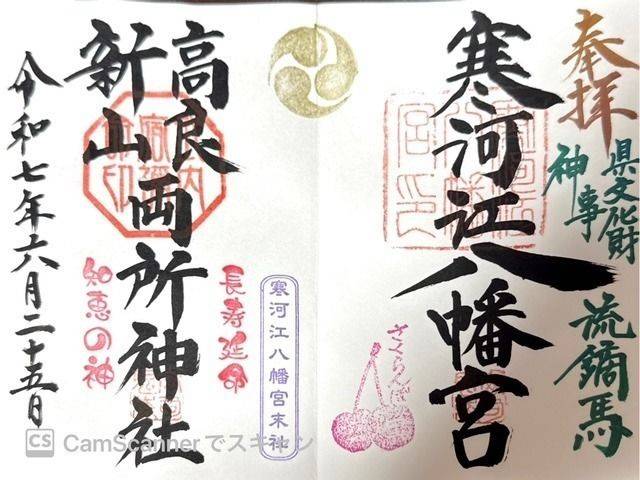 奉拝
県文化財
神事
流鏑馬
寒河江八幡宮
さくらんぼ
寒河江八幡宮末社
長寿延命
高良
新山両所神社
知恵の神
令和七年六月二十五日
CS CamScannerでスキャン